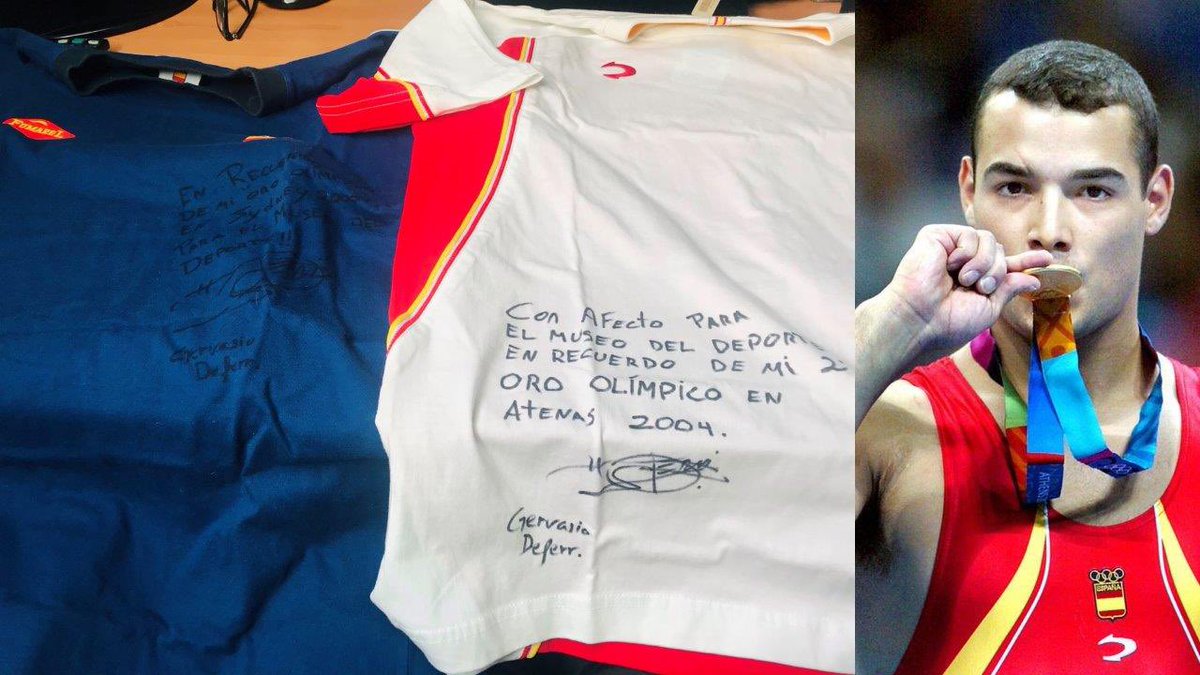 POMAREL
EN RECUERDO
DE MI ORO
EN SYDNEY
PARA EL MUSEO
DEPORTE
Gervasio
Deferr.
CON AFECTO PARA
EL MUSEO DEL DEPORTE
EN RECUERDO DE MI 2
ORO OLÍMPICO EN
ATENAS 2004.
Gervasio
Deferr.
ATHENS
ESPAÑA